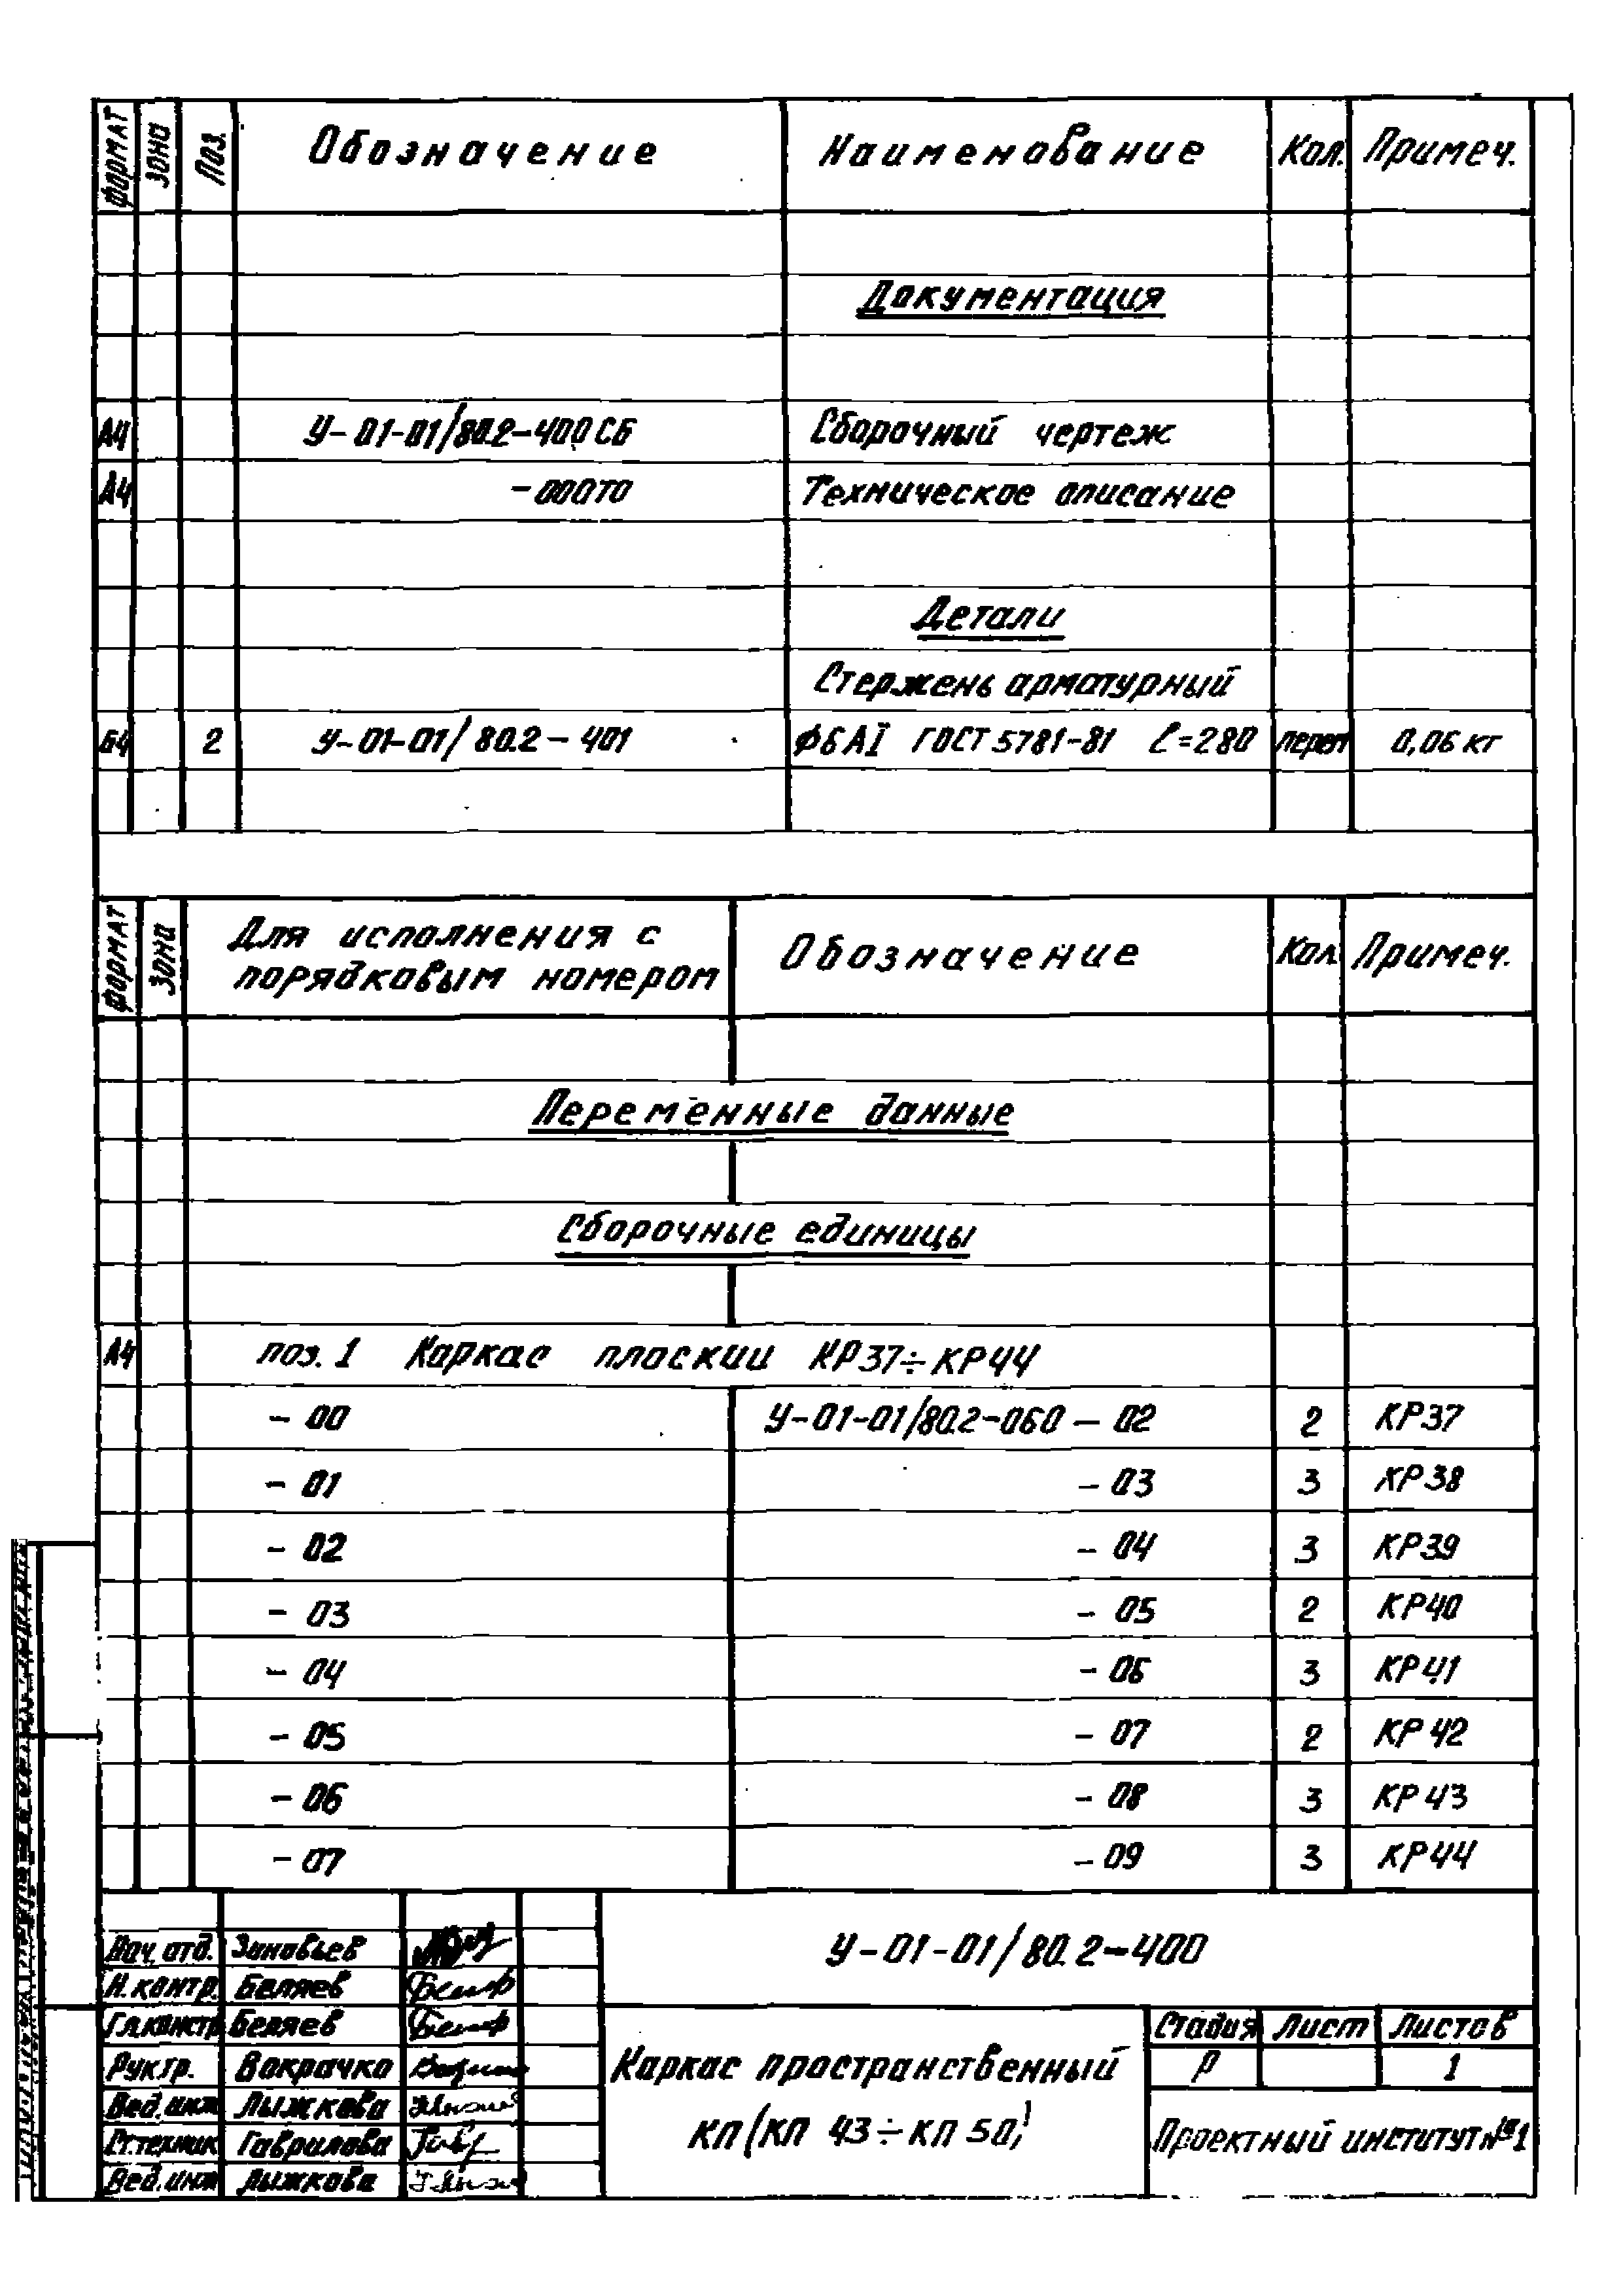 Формат Зона Поз. Обозначение Наименование Кол. Примеч.
Документация
А4 У-01-01/80.2-400СБ Сборочный чертеж
А4 -000ТО Техническое описание
Детали
Стержень арматурный
Б4 2 У-01-01/80.2-401 Ф6АI ГОСТ 5781-81 ℓ=280 перем 0,06 кг
Формат Зона Для исполнения с порядковым номером Обозначение Кол. Примеч.
Переменные данные
Сборочные единицы
А4 поз. 1 Каркас плоский КР37÷КР44
- 00 У-01-01/80.2-060 - 02 2 КР37
- 01 - 03 3 КР38
- 02 - 04 3 КР39
- 03 - 05 2 КР40
- 04 - 06 3 КР41
- 05 - 07 2 КР42
- 06 - 08 3 КР43
- 07 - 09 3 КР44
У-01-01/80.2-400
Нач. отд. Зиновьев
Н. контр. Беляев
Гл.констр Беляев
Рук.гр. Вокрачко
Вед. инж Лыжкова
Ст.техник Гаврилова
Вед.инж Лыжкова
Каркас пространственный
КП(КП 43÷КП 50)
Стадия Лист Листов
Р 1
Проектный институт №1